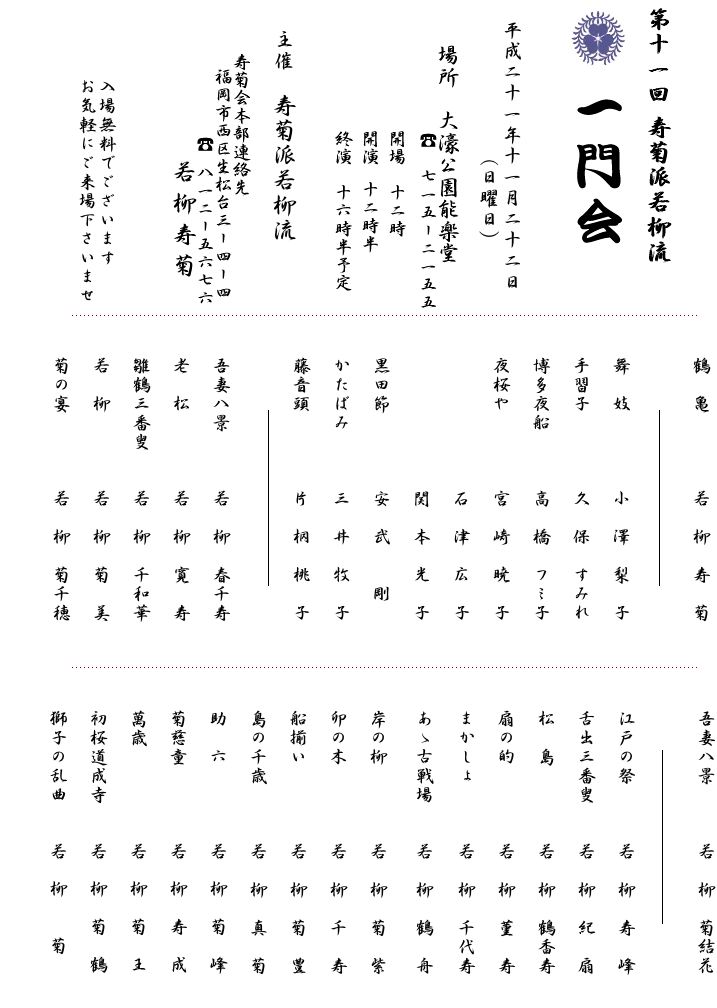 第十一回 寿菊派若柳流
一門会
平成二十一年十一月二十二日
（日曜日）
場所 大濠公園能楽堂
☎ 七一五ー二一五五
開場 十二時
開演 十二時半
終演 十六時半予定
主催 寿菊派若柳流
寿菊会本部連絡先
福岡市西区生松台三ー四ー四
☎ 八一二ー五六七六
若柳寿菊
入場無料でございます
お気軽にご来場下さいませ
鶴亀 若柳寿菊
舞妓 小澤梨子
手習子 久保すみれ
博多夜船 高橋フミ子
夜桜や 宮崎暁子
石津広子
関本光子
黒田節 安武剛
かたばみ 三井牧子
藤音頭 片柄桃子
吾妻八景 若柳春千寿
老松 若柳寛寿
雛鶴三番叟 若柳千和華
若柳 若柳菊美
菊の宴 若柳菊千穂
吾妻八景 若柳菊結花
江戸の祭 若柳寿峰
舌出三番叟 若柳紀扇
松島 若柳鶴香寿
扇の的 若柳菫寿
まかしょ 若柳千代寿
あゝ古戦場 若柳鶴舟
岸の柳 若柳菊紫
卯の木 若柳千寿
船揃い 若柳菊豊
島の千歳 若柳真菊
助六 若柳菊峰
菊慈童 若柳寿成
萬歳 若柳菊王
初桜道成寺 若柳菊鶴
獅子の乱曲 若柳菊